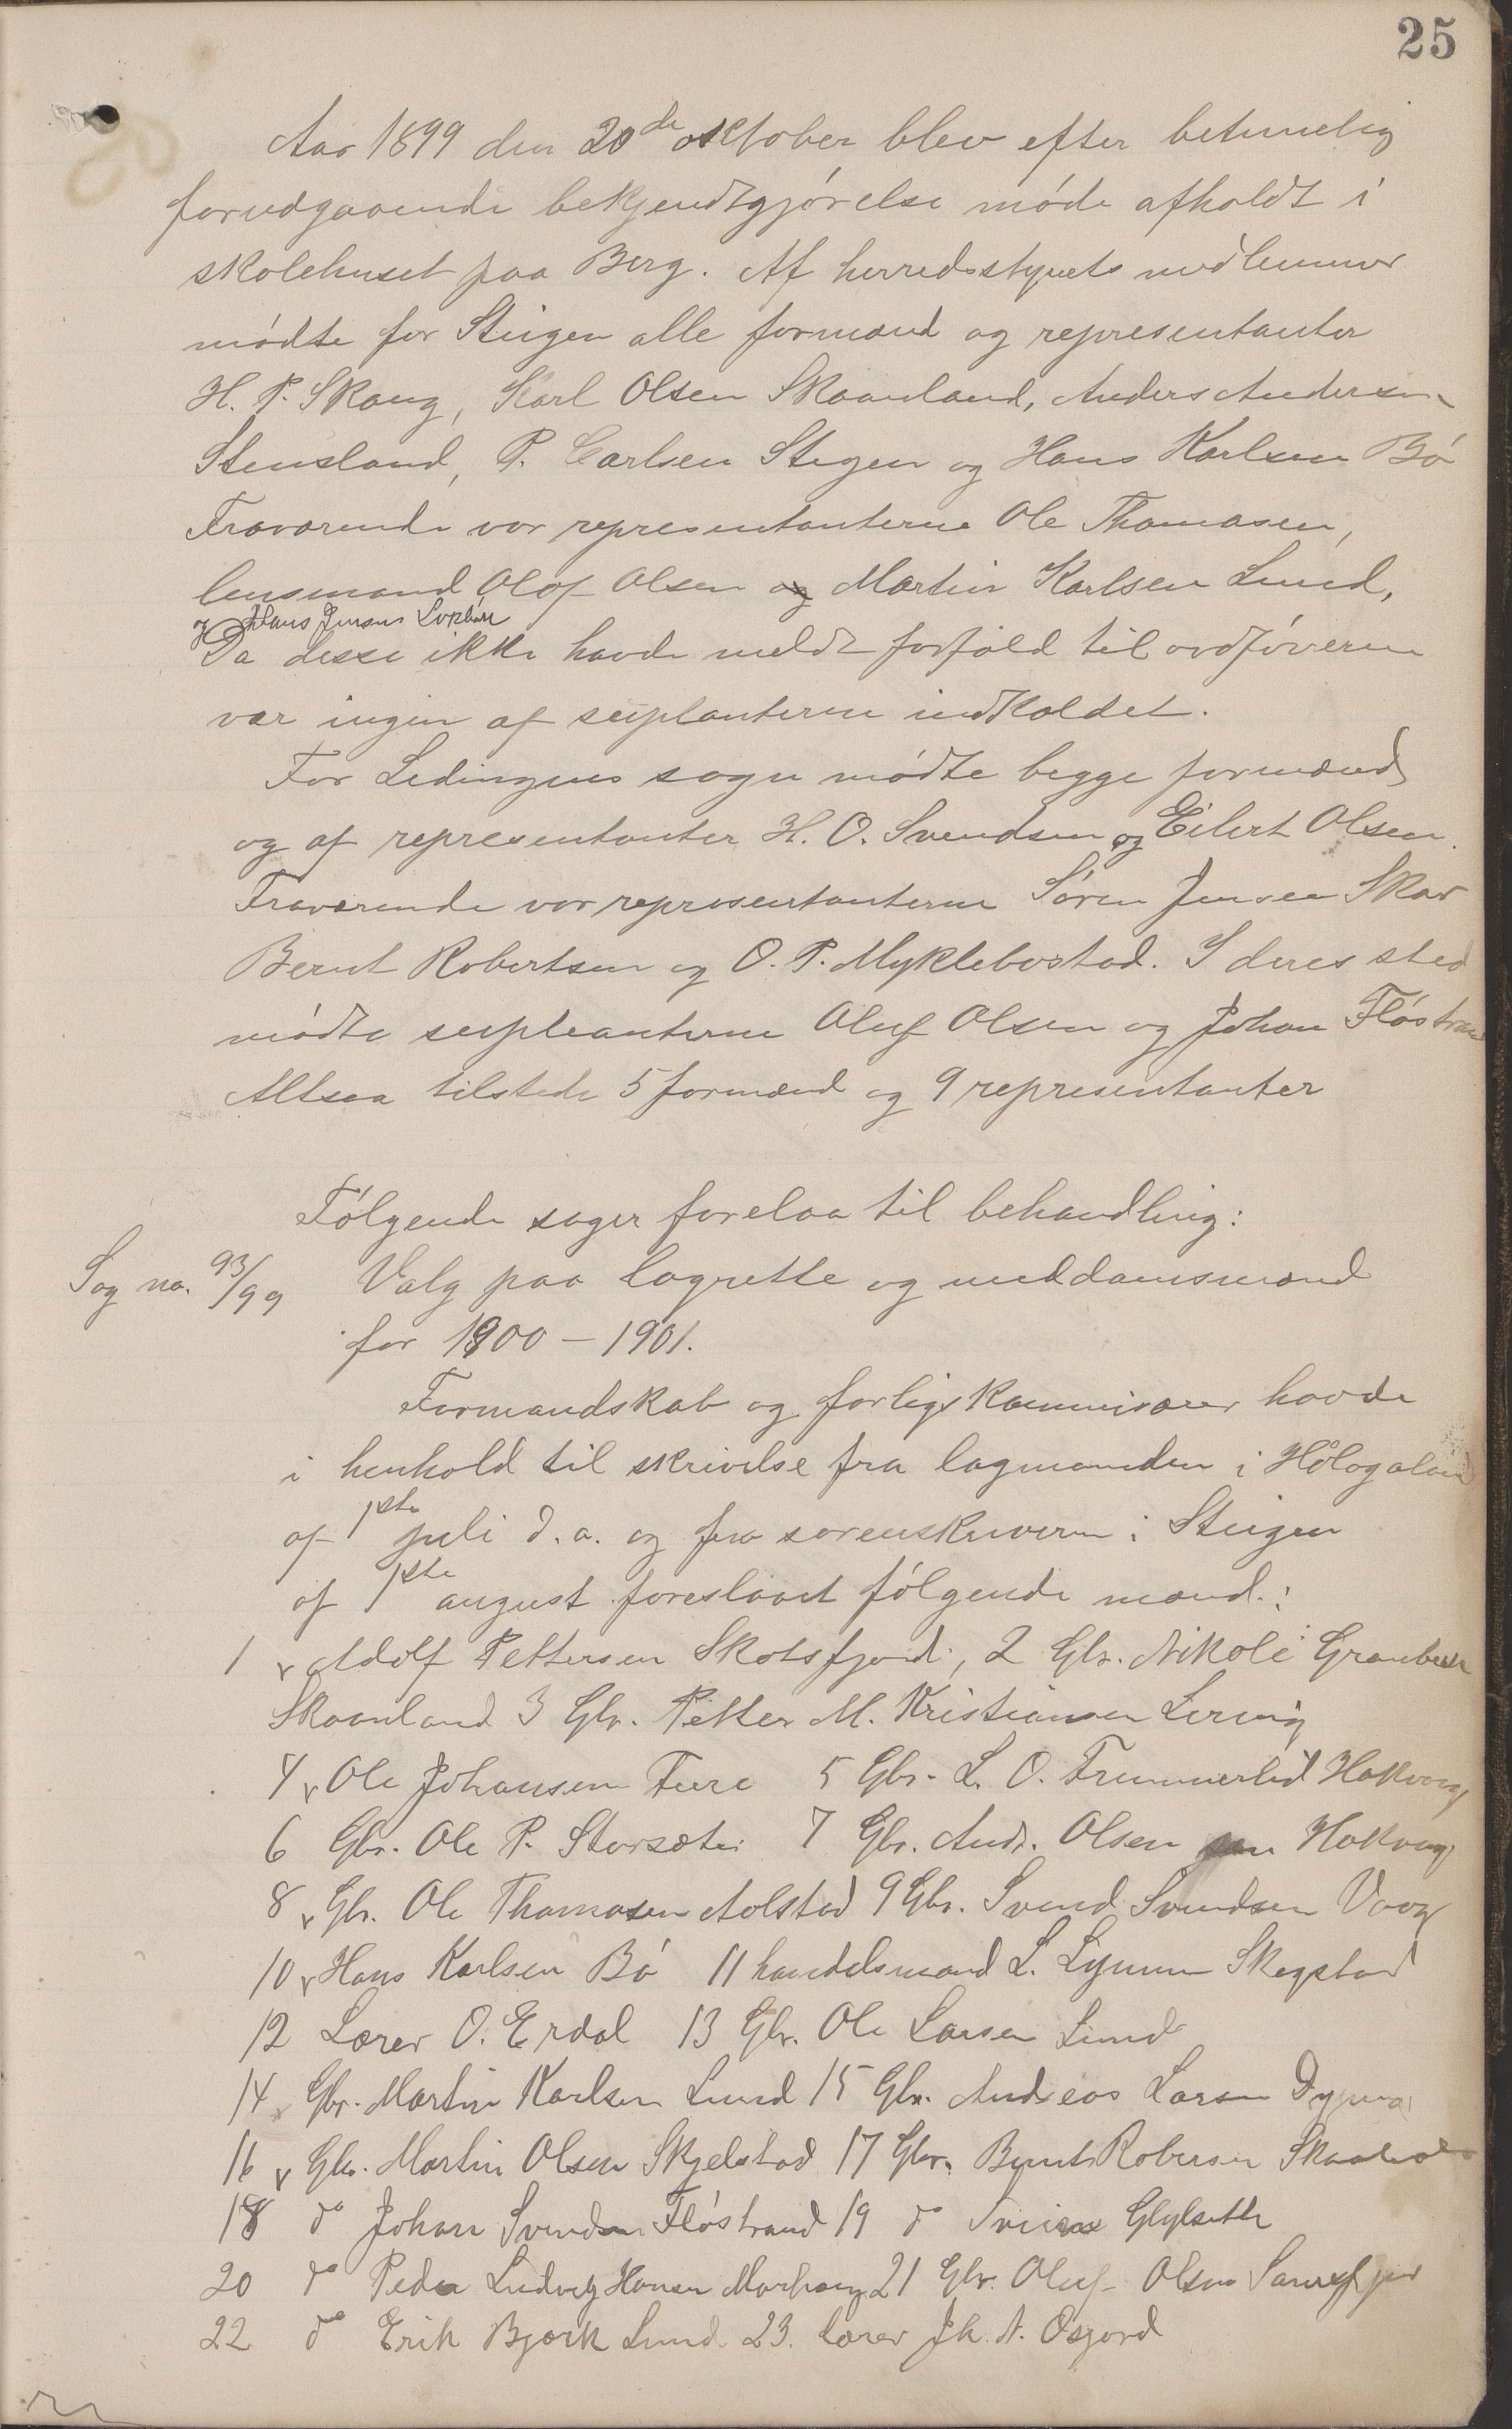 25
Aar 1899 den 20de oktober blev efter betimelig
forudgaaende bekjendtgjørelse møde afholdt i
skolehuset paa Berg. Af herredsstyrets medlemmer
mødte for Steigen alle formænd og representanter
H. P. Skaug, Karl Olsen Skaanland, Anders Andersen
Stensland, P. Carlsen Stegen og Hans Karlsen Bø
Fraværende var representanterne Ole Thomasen,
lensmand Olof Olsen og Martin Karlsen Lund,
og Hans Jensen
Da disse ikke havde meldt forfald til ordføreren
var ingen af suplanterne indkaldet.
For Ledingens sogn mødte begge formænd
og af representanter H. O. Svendsen og Eilert Olsen.
Fraværende var representanterne Søren Jensen Skar
Bernt Robertsen og O. P. Myklebostad. I deres sted
mødte supleanterne Oluf Olsen og Johan Fløstrand
Altsaa tilstede 5 formænd og 9 representanter
Følgende sager forelaa til behandling:
Sag no. 93/99 Valg paa lagrette og meddomsmænd
for 1900 – 1901.
Formandskab og forligskommisærer havde
i henhold til skrivelse fra lagmanden i Hålogaland
af 1ste juli d.a. og fra sorenskriveren i Steigen
af 1ste august foreslaaet følgende mænd.:
1 Adolf Pettersen Skotsfjord, 2 Gbr. Nikolé
Skaanland 3 Gbr. Petter M. Kristiansen Lervig
4 Ole Johansen Fure 5 Gbr. L. O. Hakvaag
6 Gbr. Ole P. Storsæter 7 Gbr. Andr. Olsen Hakvaag
8 Gbr. Ole Thomasen Aalstad 9 Gbr. Svend Svendsen Vaag
10 Hans Karlsen Bø 11 handelsmand L. Skagstad
12 Lærer O. Erdal 13 Gbr. Ole Larsen Lund
14 Gbr. Martin Karlsen Lund 15 Gbr. Andreas Larsen
16 Gbr. Martin Olsen Skjelstad 17 Gbr. Bernt Robersen
18 do Johan Svendsen Fløstrand 19 do
20 do Peder Ludvig Hansen 21 Gbr. Oluf Olsen
22 do Erik Bjørk Lund 23. lærer Jh. A. Osjord